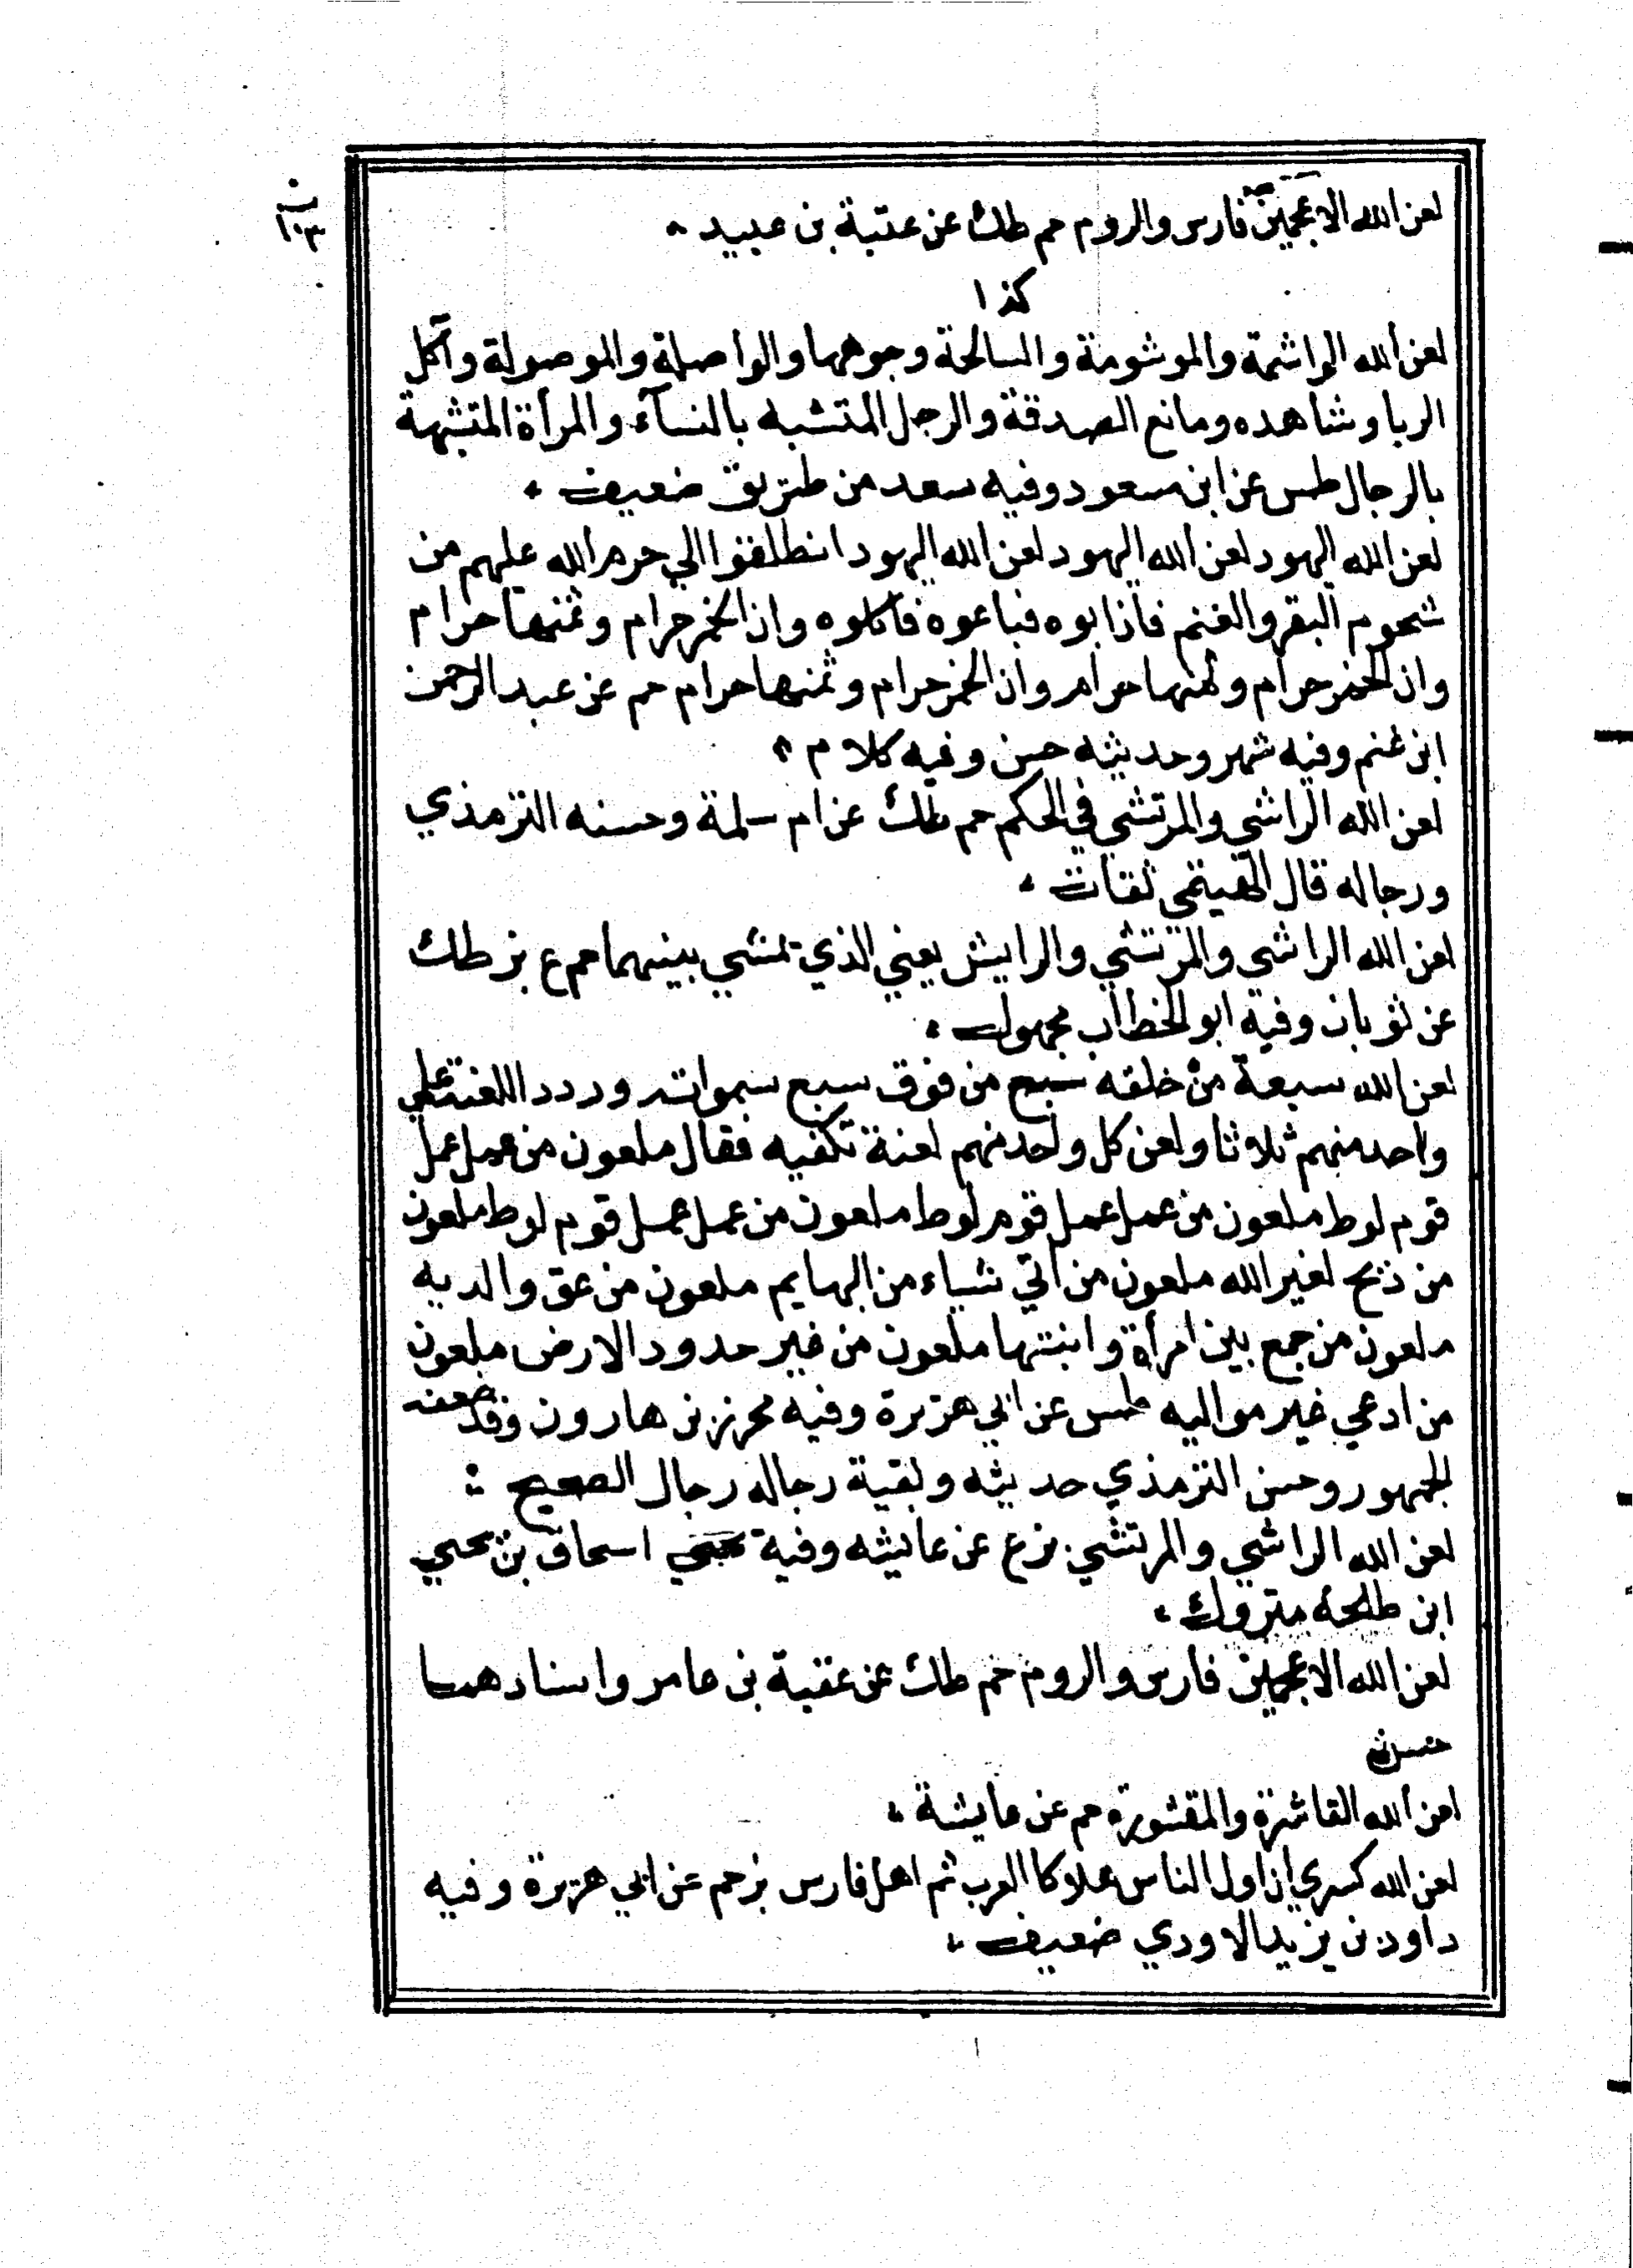 ن
١٠٣
لعن الله الاعجمين فارس والروم حم طك عن عتبة بن عبيد
كذا
لعن الله الواشمة والموشومة والسالخة وجوهها والواصلة والموصولة وآكل
الربا وشاهده ومانع الصدقة والرجل المتشبه بالنسآء والمرأة المتشبهة
بالرجال طس عن ابن مسعود وفيه سعد من طريق ضعيف
لعن الله اليهود لعن الله اليهود لعن الله اليهود انطلقوا الي حرم الله عليهم من
شحوم البقر والغنم فاذابوه فباعوه فاكلوه وان الخمر حرام وثمنها حرام
وان الخمر حرام وثمنها حرام وان الخمر حرام وثمنها حرام حم عن عبد الرحمن
ابن غنم وفيه شهر وحديثه حسن وفيه كلام
لعن الله الراشي والمرتشي في الحكم حم طك عن ام سلمة وحسنه الترمذي
ورجاله قال الهيثمي ثقات
لعن الله الراشي والمرتشي والرايش يعني الذي يمشي بينهما حم ع بز طك
عن ثوبان وفيه ابو الخطاب مجهول
لعن الله سبعة من خلقه سبع من فوق سبع سمواته وردد اللعنة علي
واحد منهم ثلاثا ولعن كل واحد منهم لعنة تكفيه فقال ملعون من عمل عمل
قوم لوط ملعون من عمل عمل قوم لوط ملعون من عمل عمل قوم لوط ملعون
من ذبح لغير الله ملعون من اتي شياء من البهايم ملعون من عق والديه
ملعون من جمع بين امرأة وابنتها ملعون من غير حدود الارض ملعون
من ادعي غير مواليه طس عن ابي هريرة وفيه محرز بن هارون وقد ضعفه
الجمهور وحسن الترمذي حديثه وبقية رجاله رجال الصحيح
لعن الله الراشي والمرتشي بز ع عن عائشه وفيه اسحاق بن يحيي
ابن طلحة متروك
لعن الله الاعجمين فارس والروم حم طك عن عقبة بن عامر واسنادهما
حسن
لعن الله القاشرة والمقشورة حم عن عايشة
لعن الله كسري ان اول الناس هلاكا العرب ثم اهل فارس بز حم عن ابي هريرة وفيه
داود بن يزيد الاودي ضعيف